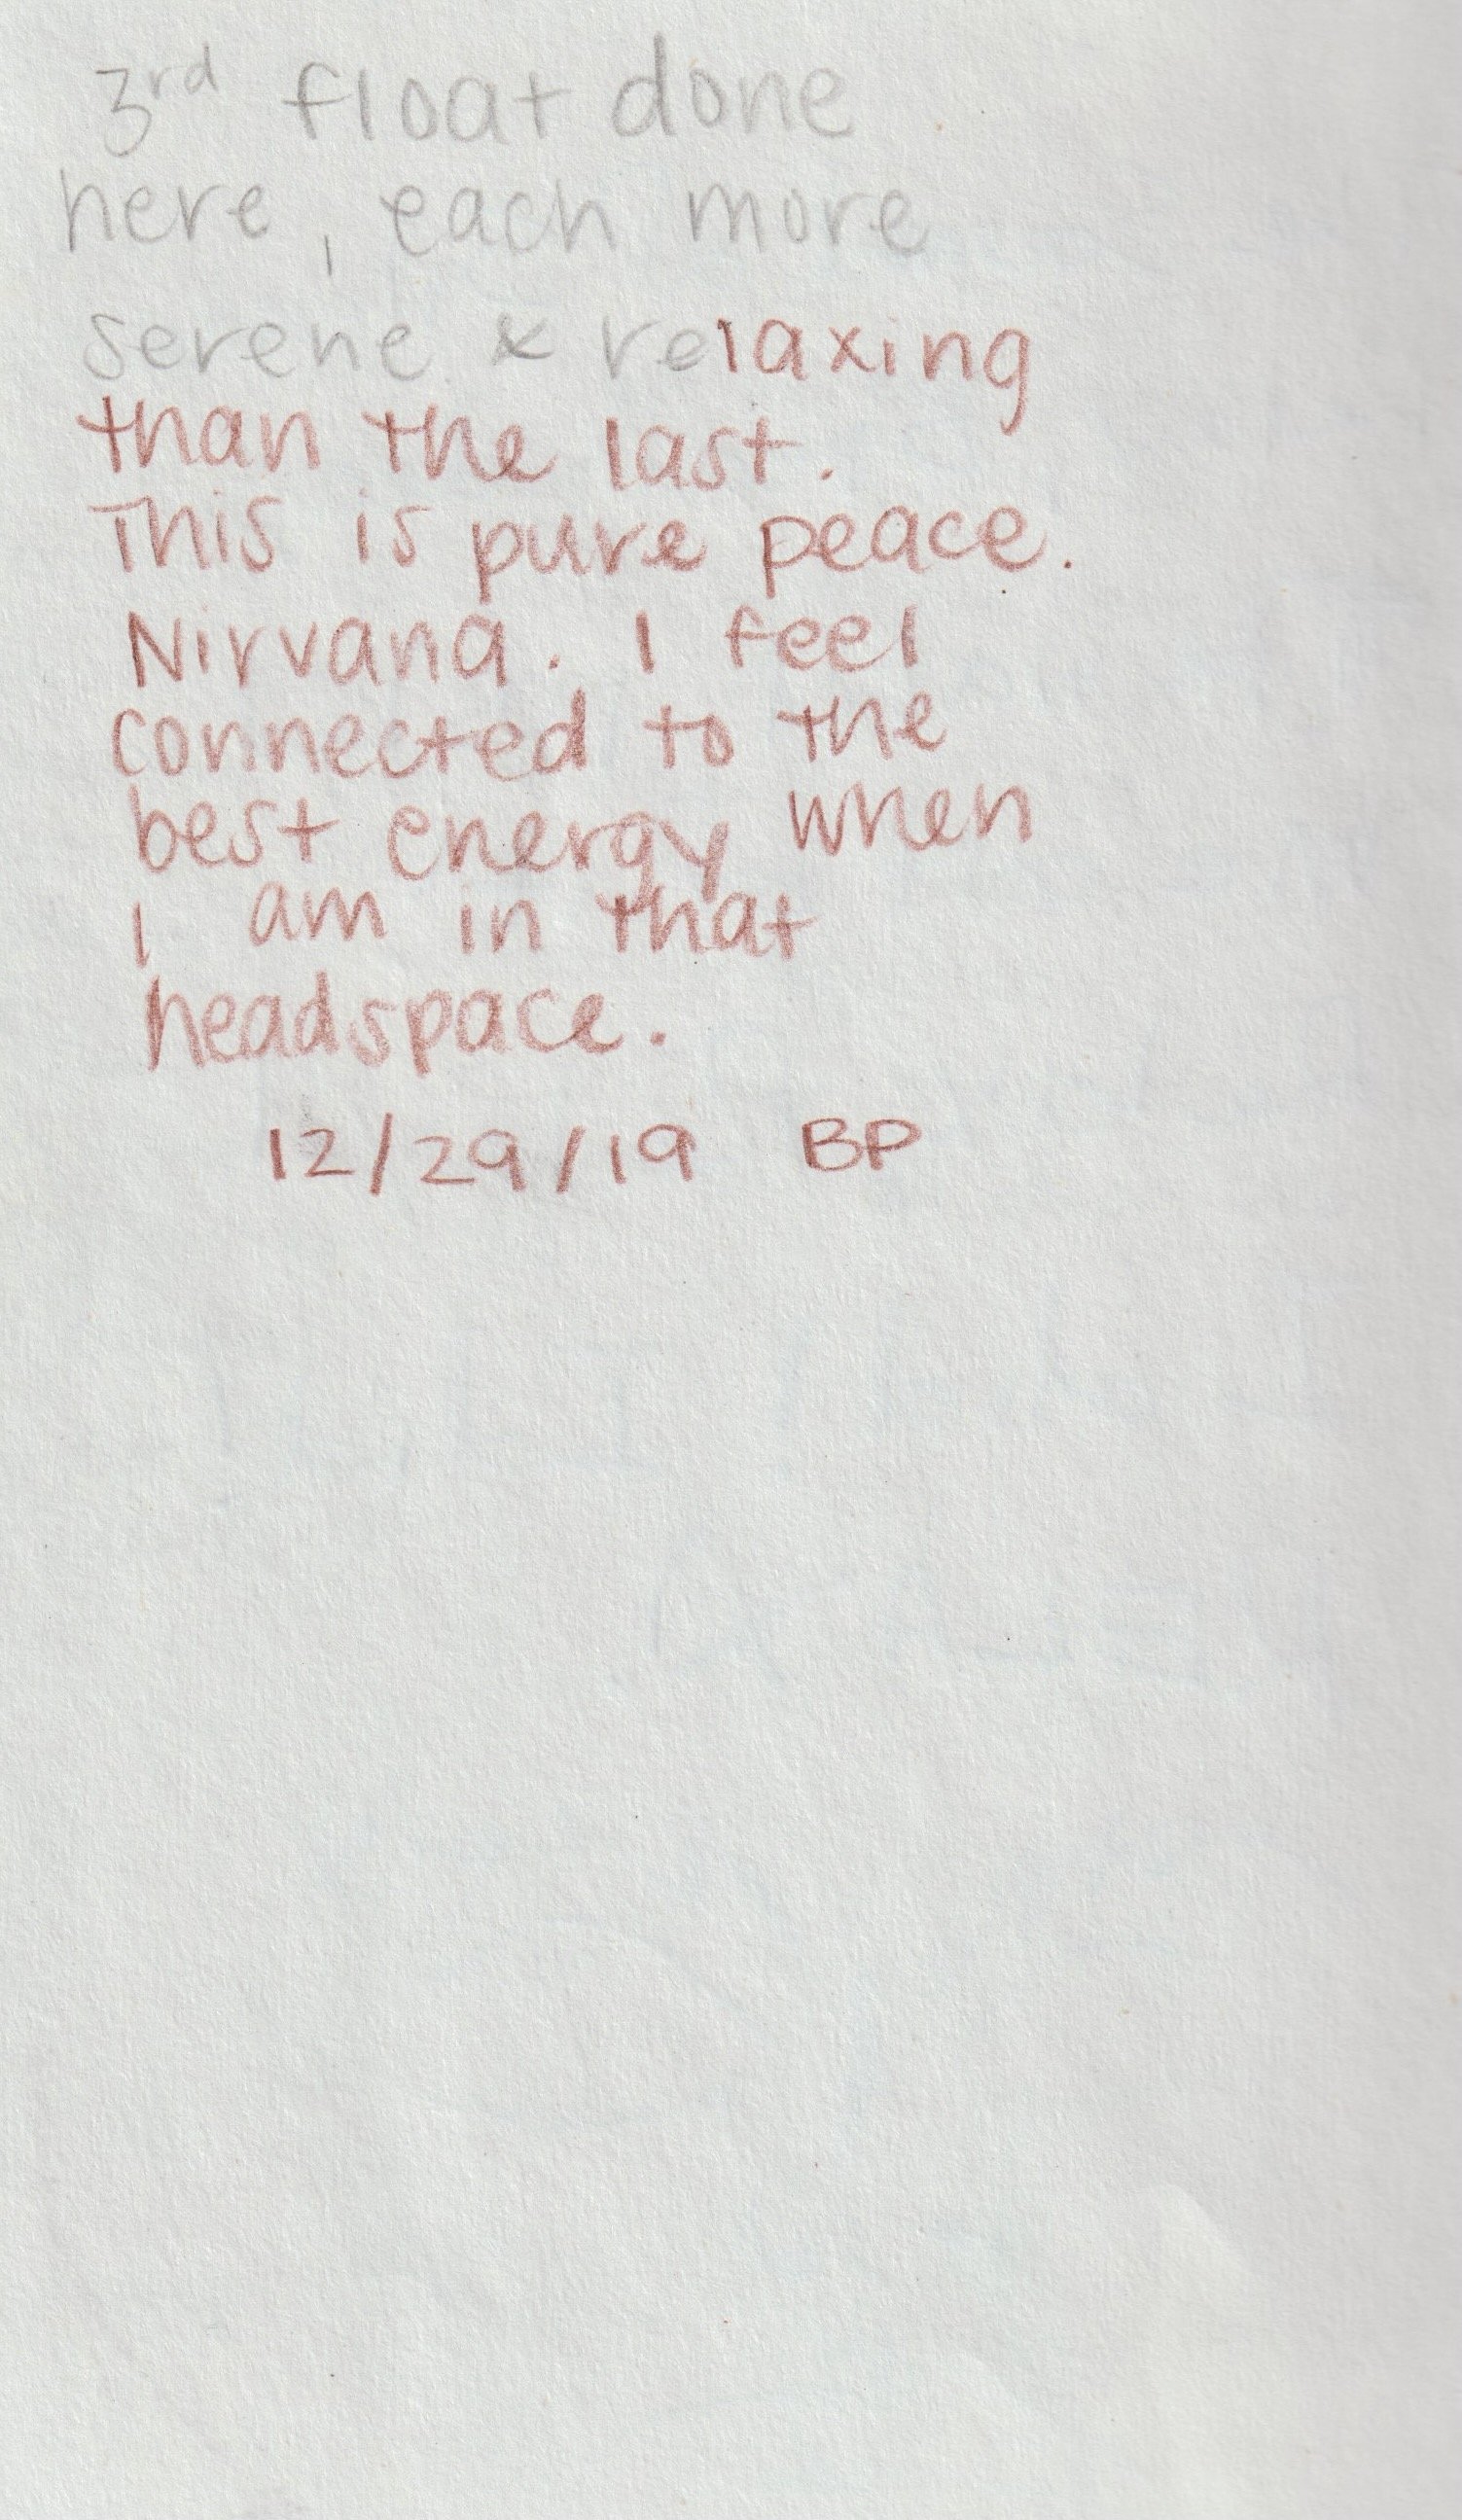 3rd float done
here, each more
serene & relaxing
than the last.
This is pure peace.
Nirvana. I feel
connected to the
best energy when
I am in that
headspace.
12/29/19 BP